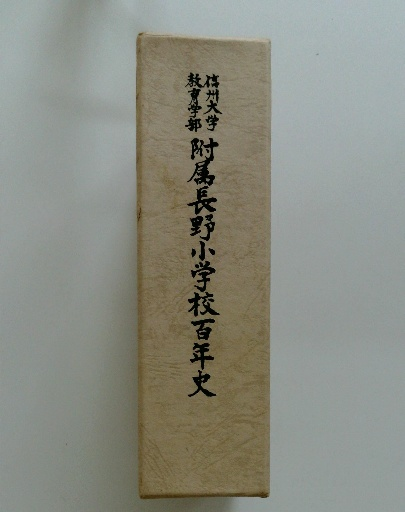 信州大学
教育学部
附属長野小学校百年史